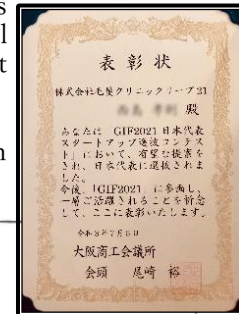 s
l
t
表彰状
株式会社毛髪クリニックリーブ21
殿
あなたは「GIF2021日本代表
スタートアップ選抜コンテス
ト」において、有望な提案を
され、日本代表に選抜されま
した。
今後、「GIF2021」に参画し、
一層ご活躍されることを祈念
して、ここに表彰いたします。
令和3年7月6日
大阪商工会議所
会頭 尾崎 裕